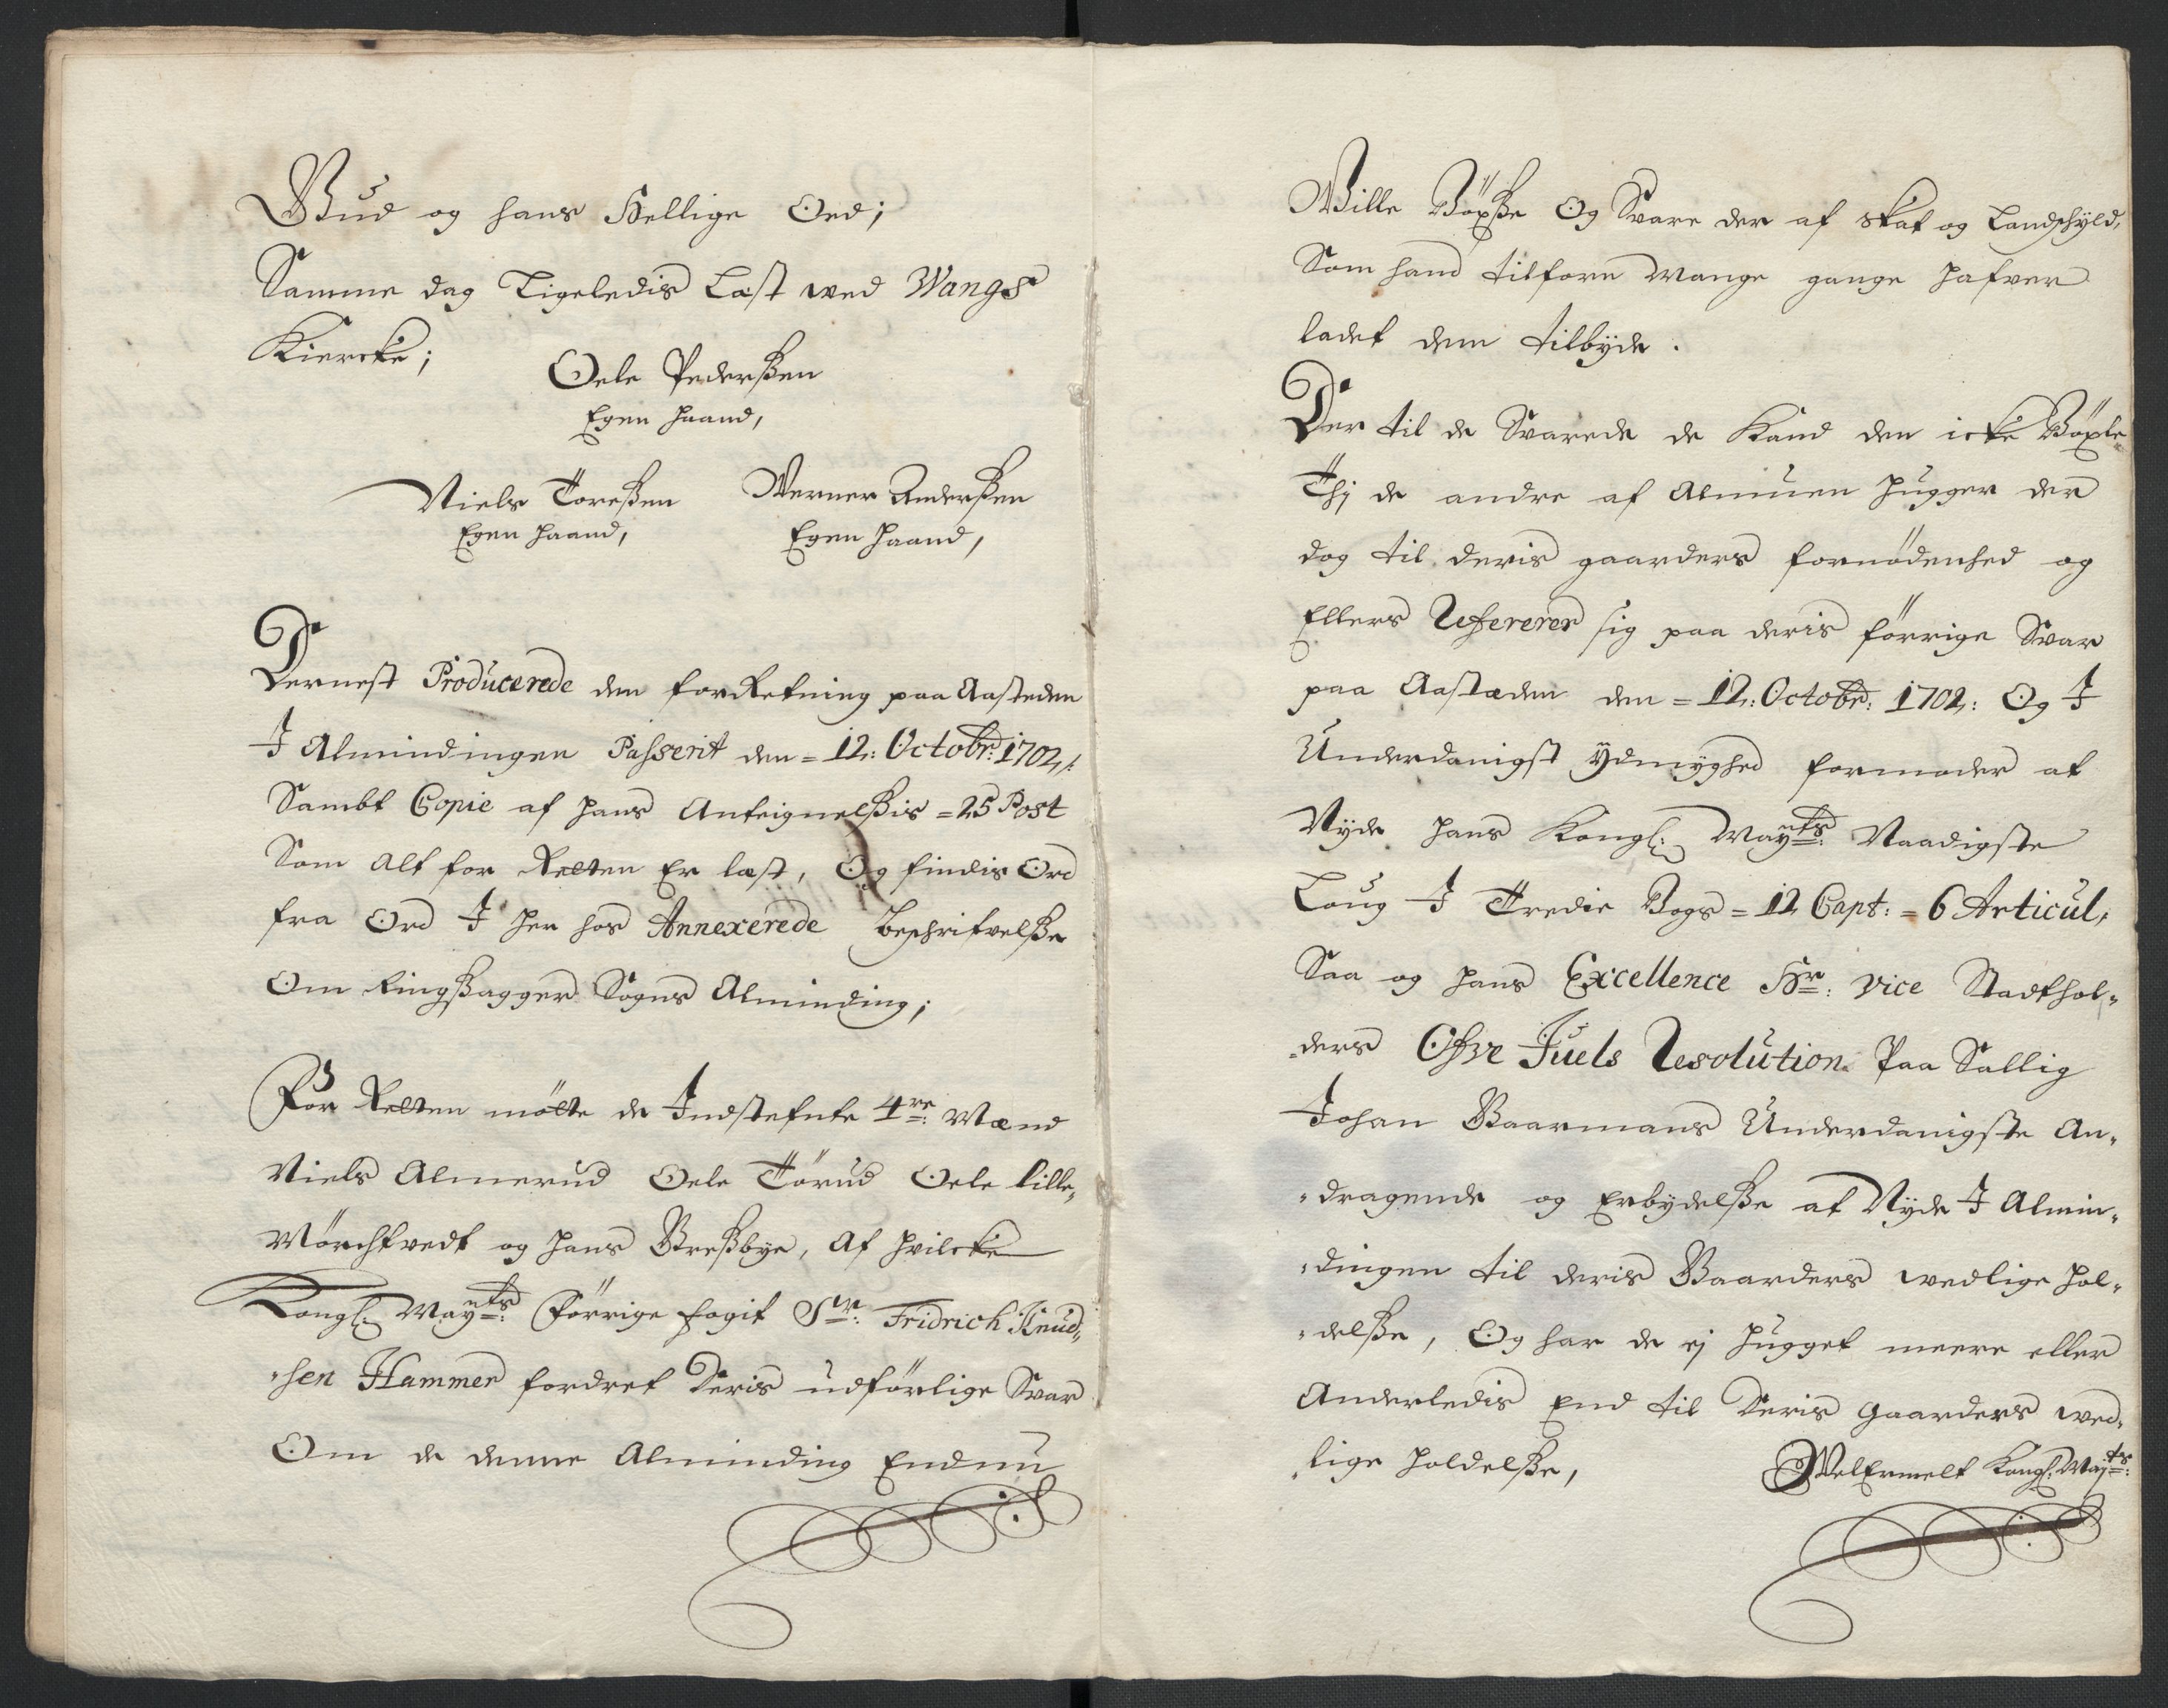 Gud og hans Hellige Ord;
Samme dag Ligeledis Læst ved Wangs
Kiercke;
Oele Pederßen
Egen Haand,
Niels Toreßen Werner Anderßen
Egen Haand, Egen Haand,
Dernest Producerede den forRetning paa Aasteden
I Almindingen Passerit den = 12: Octobr: 1702,:
Sambt Copie af hans Anteignelßis = 25 Post
Som Alt for Retten Er læst, Og findis Ord
fra Ord I her hos Annexerede Beschrifvelße
Om Ringßagger Sogns Alminding;
For Retten mötte de Indstefnte 4re: Mænd
Niels Almerud Oele Törud Oele Lille-
Mörchtvedt og Hans Breßbye, Af hvilcke
Kongl: Mayts: Förrige fogit Sr: Fridrich Knud-
-sen Hammer fordret Deris udförlige Svar
Om de denne Alminding Endnu
Wille Böxße Og Svare der af Skat og Landschyld,
Som hand tilforn Mange gange hafver
ladet dem tilbyde.
Der til de Svarede de Kand den icke Böxle
Thj de andre af Almuen hugger der
dog til deris gaarders fornödenhed og
Ellers Refererer sig paa deris förrige Svar
paa Aastæden den = 12: Octobr: 1702: Og I
Underdanigst ydmyghed formoder at
Nyde hans Kongl: Mayts: Naadigste
Loug I Tredie Bogs = 12 Capt: = 6 Articul,
Saa og hans Excellence Hr: Vice Stadthol-
-ders Ofve Juels Resolution Paa Sallig
Johan Gaarmans Underdanigste An-
-dragende og Erbydelße at Nyde I Almin-
-dingen til deris Gaarders vedlige hol-
-delße, Og har de ej hugget meere eller
Anderledis End til Deris gaarders ved-
-lige holdelße,
Welbemelt Kongl: Mayts: